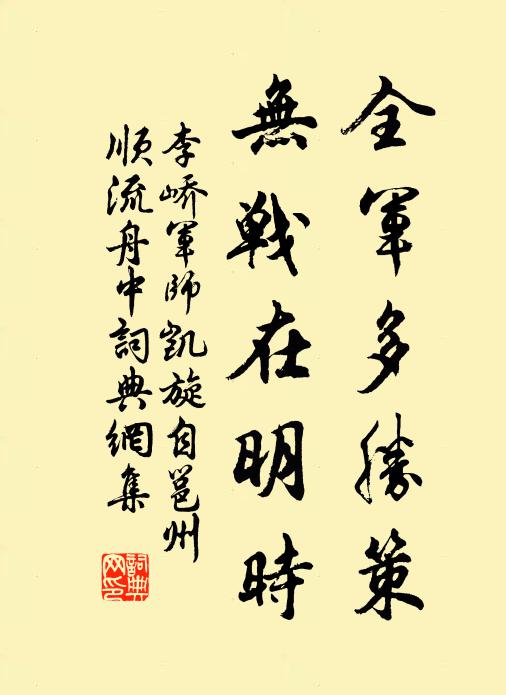 全軍多勝策
無戰在明時
李嶠軍師凱旋自邕州
順流舟中詞典網集
詞典
网印